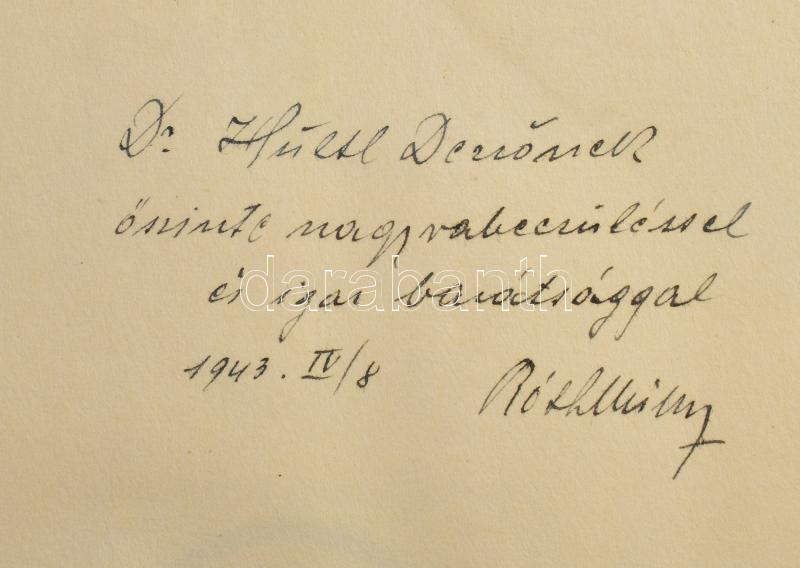 Dr. Hültl Dezsőnek
őszinte nagyrabecsüléssel
és igaz barátsággal
darabanth
1943. IV/8
Róth Miksa